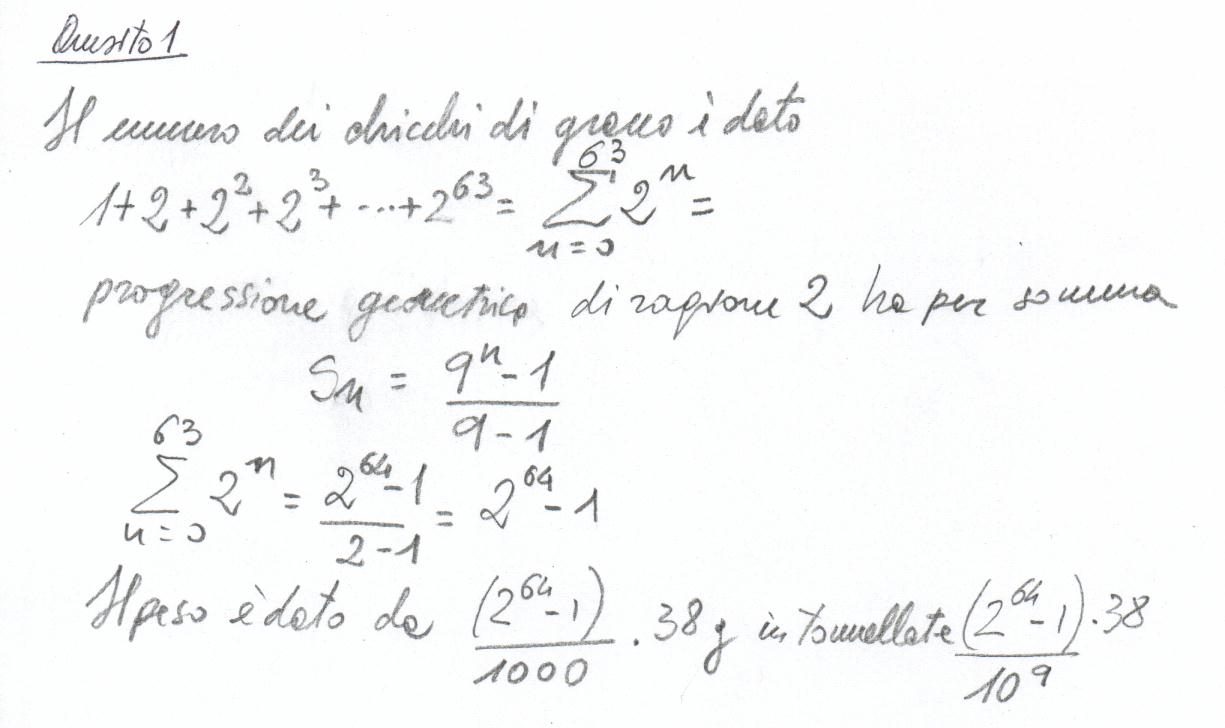 Quesito 1
Il numero dei chicchi di grano è dato
1+2+2²+2³+...+2⁶³ = ∑_{n=0}^{63} 2ⁿ =
progressione geometrica di ragione 2 ha per somma
Sₙ = (qⁿ-1)/(q-1)
∑_{n=0}^{63} 2ⁿ = (2⁶⁴-1)/(2-1) = 2⁶⁴-1
Il peso è dato da (2⁶⁴-1)/1000 · 38 g in tonnellate (2⁶⁴-1)·38/10⁹